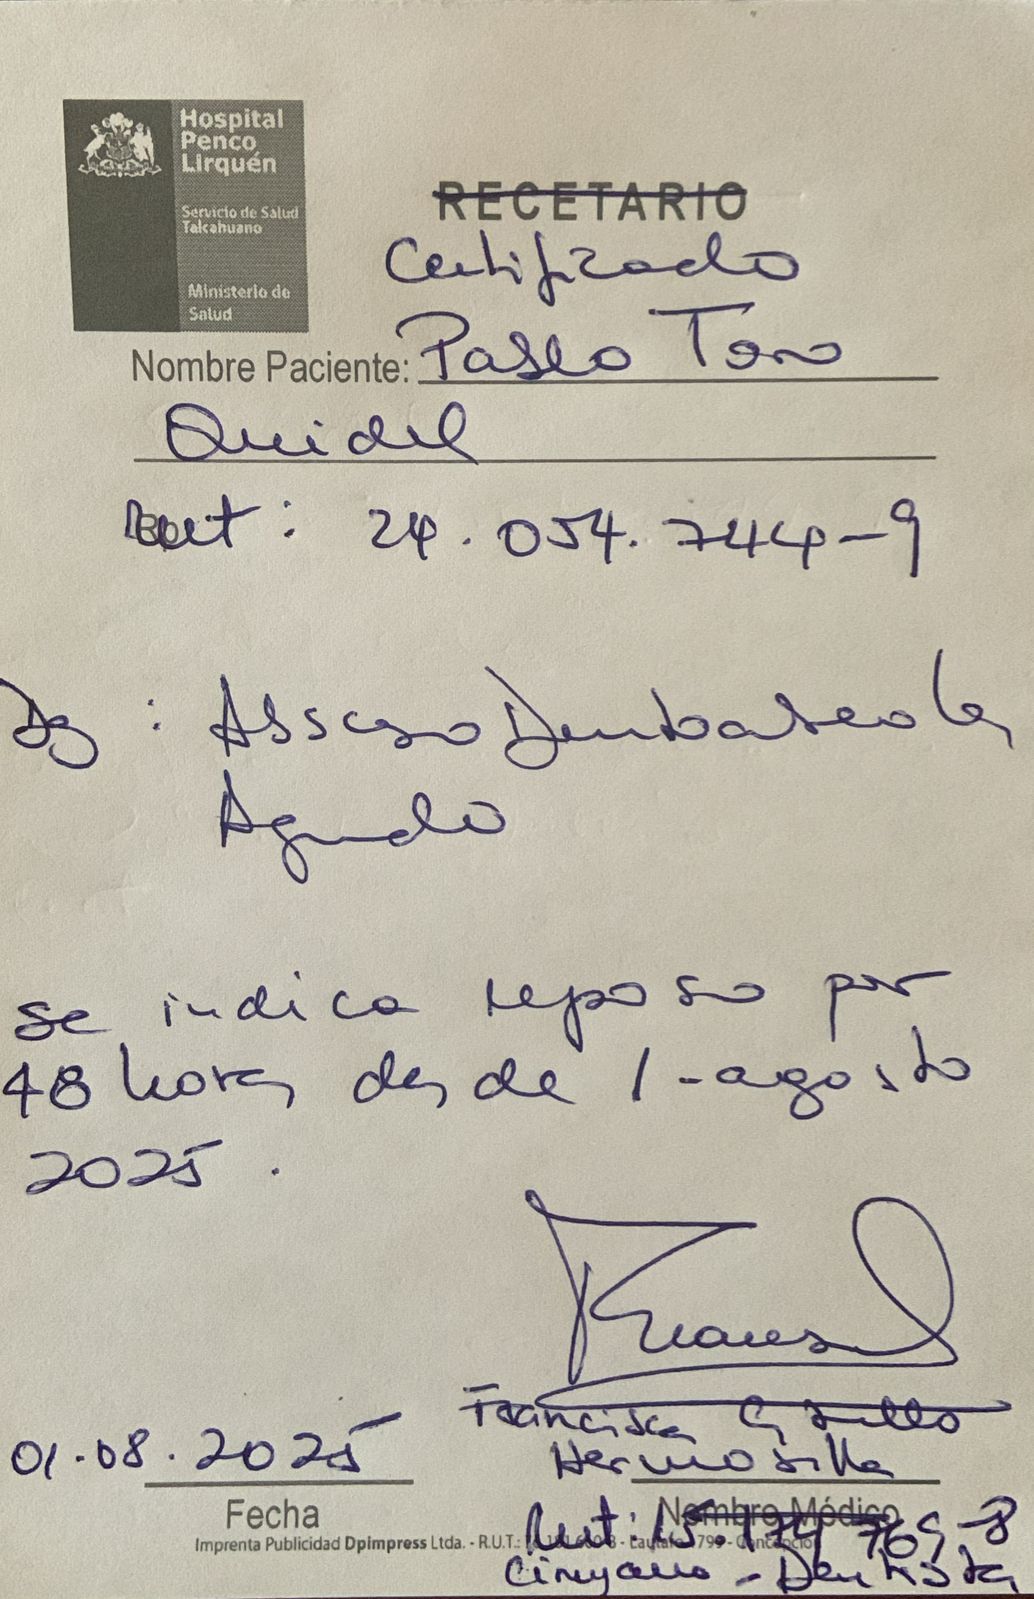 Hospital
Penco
Lirquén
Servicio de Salud
Talcahuano
Ministerio de
Salud
RECETARIO
Certificado
Nombre Paciente: Pablo Toro
Quidel
Rut: 24.054.744-9
Dg: Absceso Dentoalveolar
Agudo
se indica reposo por
48 horas desde 1-agosto
2025.
Francisca Castillo
Hermosilla
01.08.2025
Fecha
Nombre Médico
Rut: 15.174 769-8
Imprenta Publicidad DpImpress Ltda. - R.U.T.: - Lautaro 799 - Concepción
Cirujano - Dentista